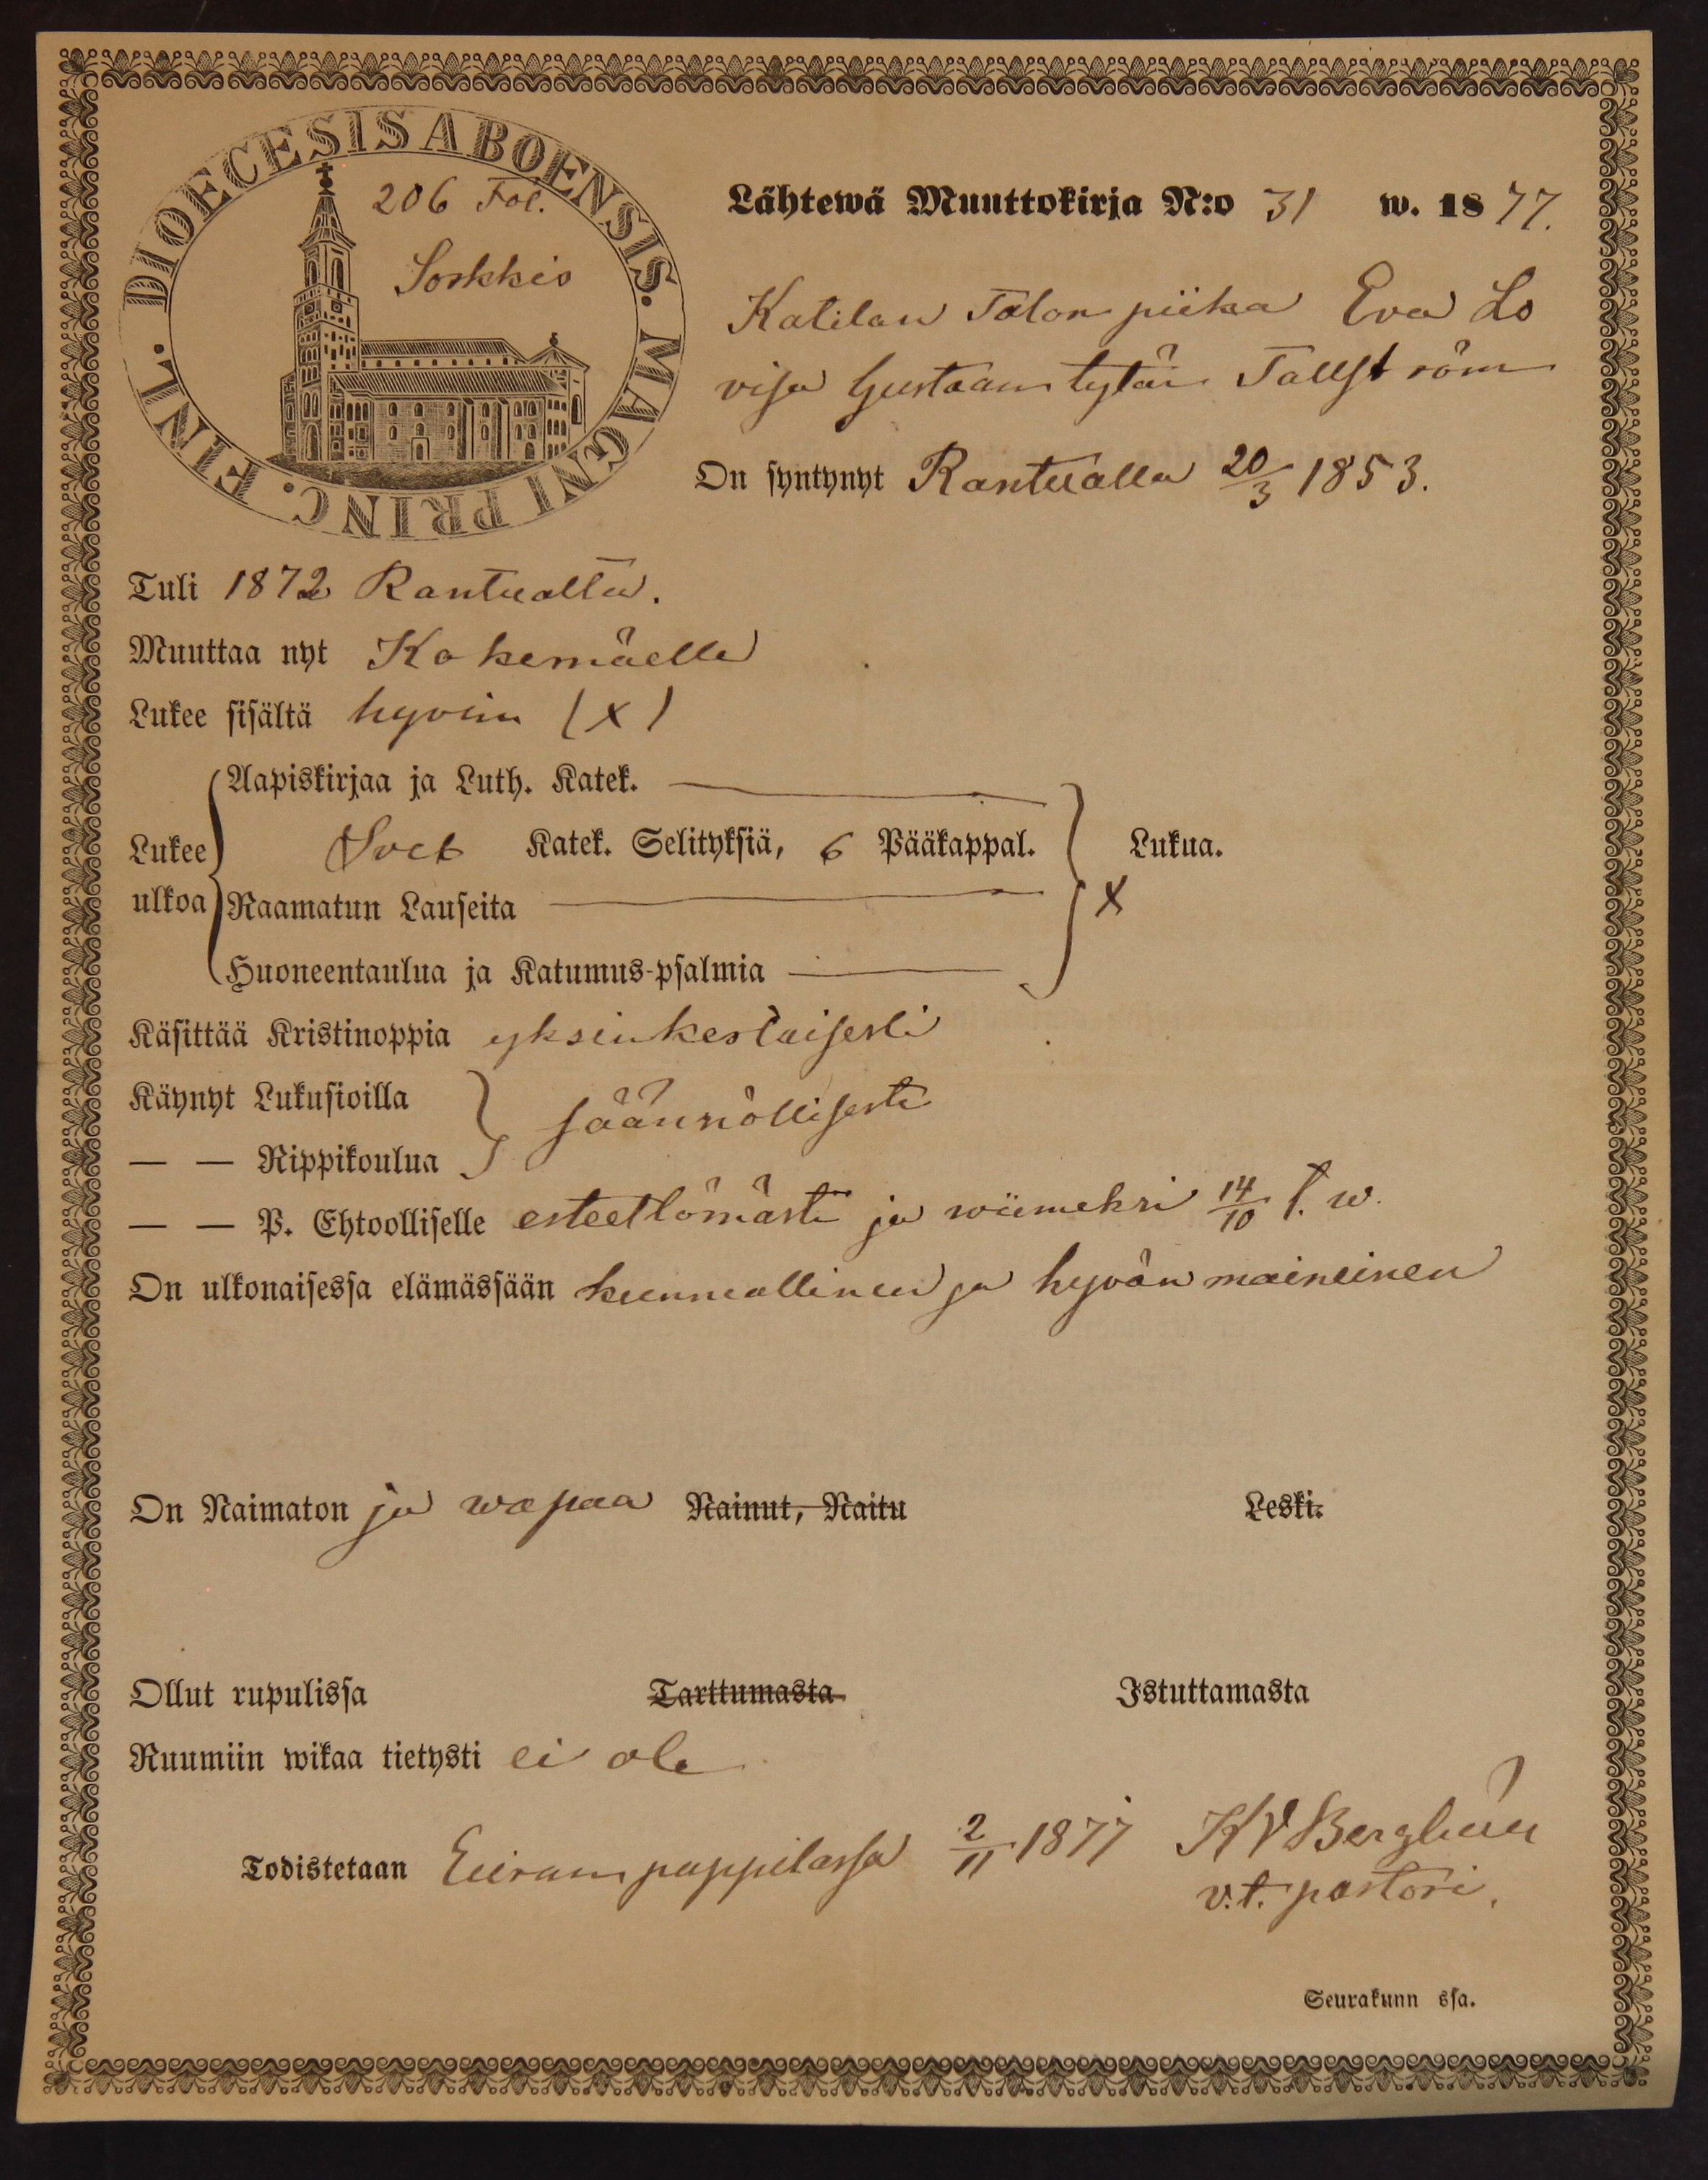 DIOECESIS ABOENSIS. MAGNI PRINC. FINL.
206 Fol.
Sorkkis
Lähtewä Muuttokirja N:o 31 w. 1877.
Katilan Talon piika Eva Lo
visa Gustaan tytär Tallström
On syntynyt Rantualla 20/3 1853.
Tuli 1872 Rantualta.
Muuttaa nyt Kokemäelle
Lukee sisältä hyvin (x)
Aapiskirjaa ja Luth. Katek.
Lukee Sveb Katek. Selityksiä, 6 Pääkappal. Lukua.
ulkoa Raamatun Lauseita x
Huoneentaulua ja Katumus-psalmia
Käsittää Kristinoppia yksinkertaisesti
Käynyt Lukusioilla
säännöllisesti
— — Rippikoulua
— — P. Ehtoolliselle esteettömästi ja wiimeksi 14/10 t. w.
On ulkonaisessa elämässään kunniallinen ja hyvän maineinen
On Naimaton ja wapaa Nainut, Naitu Leski.
Ollut rupulissa Tarttumasta Istuttamasta
Ruumiin wikaa tietysti ei ole
Todistetaan Euran pappilassa 2/11 1877 KV Berglund
v.t. pastori.
Seurakunn ssa.